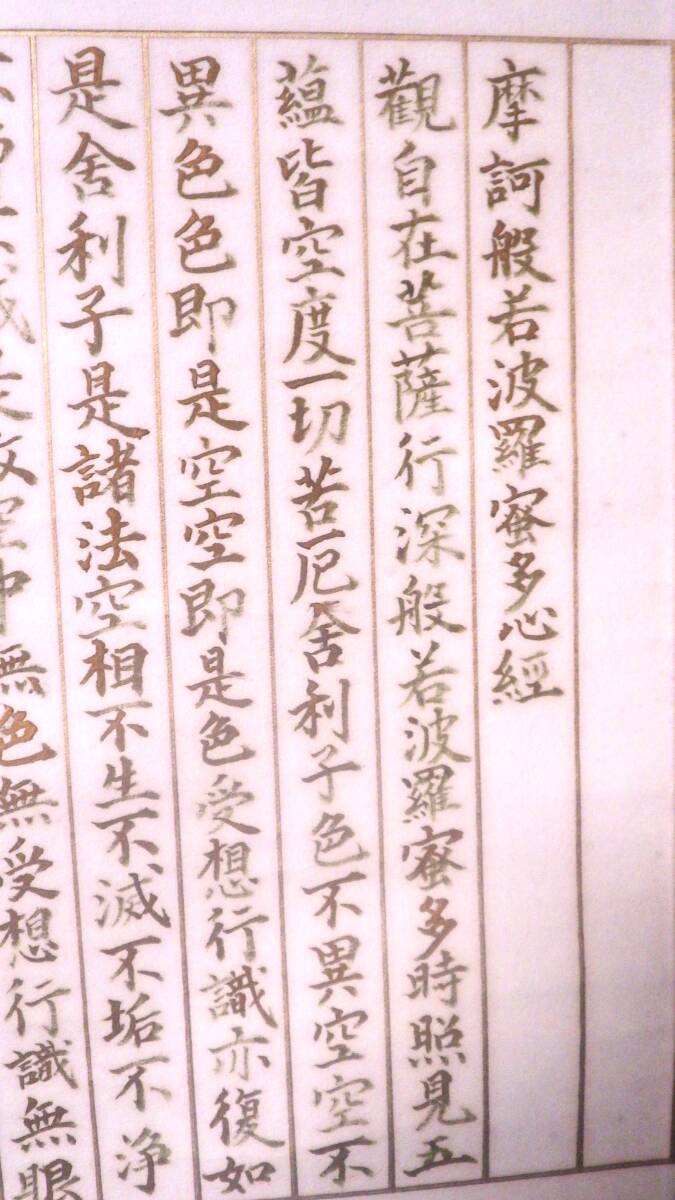 摩訶般若波羅蜜多心經
觀自在菩薩行深般若波羅蜜多時照見五
蘊皆空度一切苦厄舍利子色不異空空不
異色色即是空空即是色受想行識亦復如
是舍利子是諸法空相不生不滅不垢不浄
不增不減是故空中無色無受想行識無眼